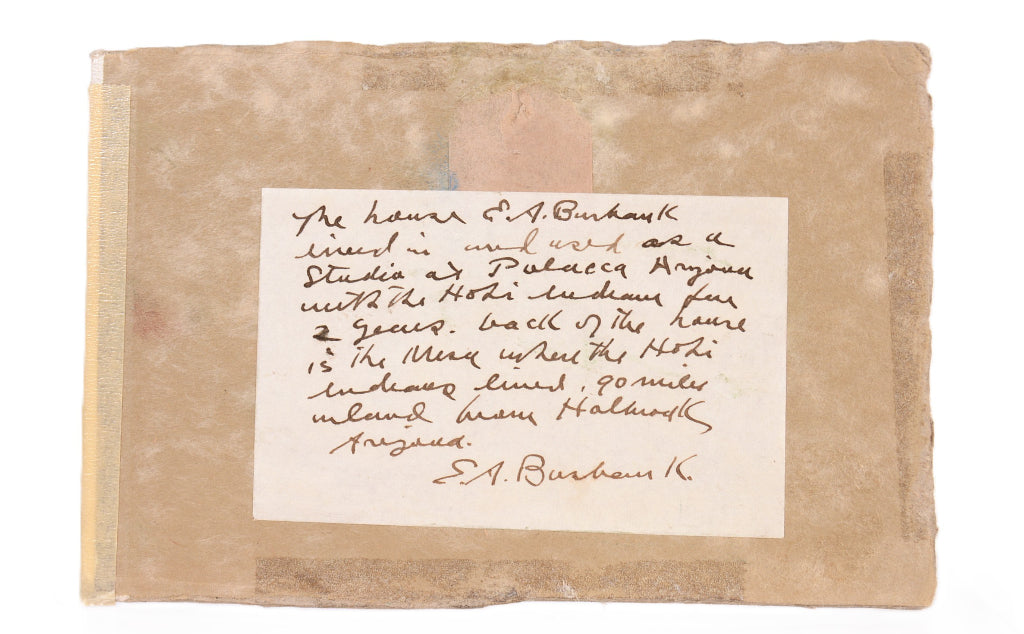 The house E.A. Burbank
lived in and used as a
Studio at Polacca Arizona
with the Hopi Indians for
2 years. back of the house
is the Mesa where the Hopi
Indians lived, 90 miles
inland from Holbrook
Arizona.
E.A. Burbank.